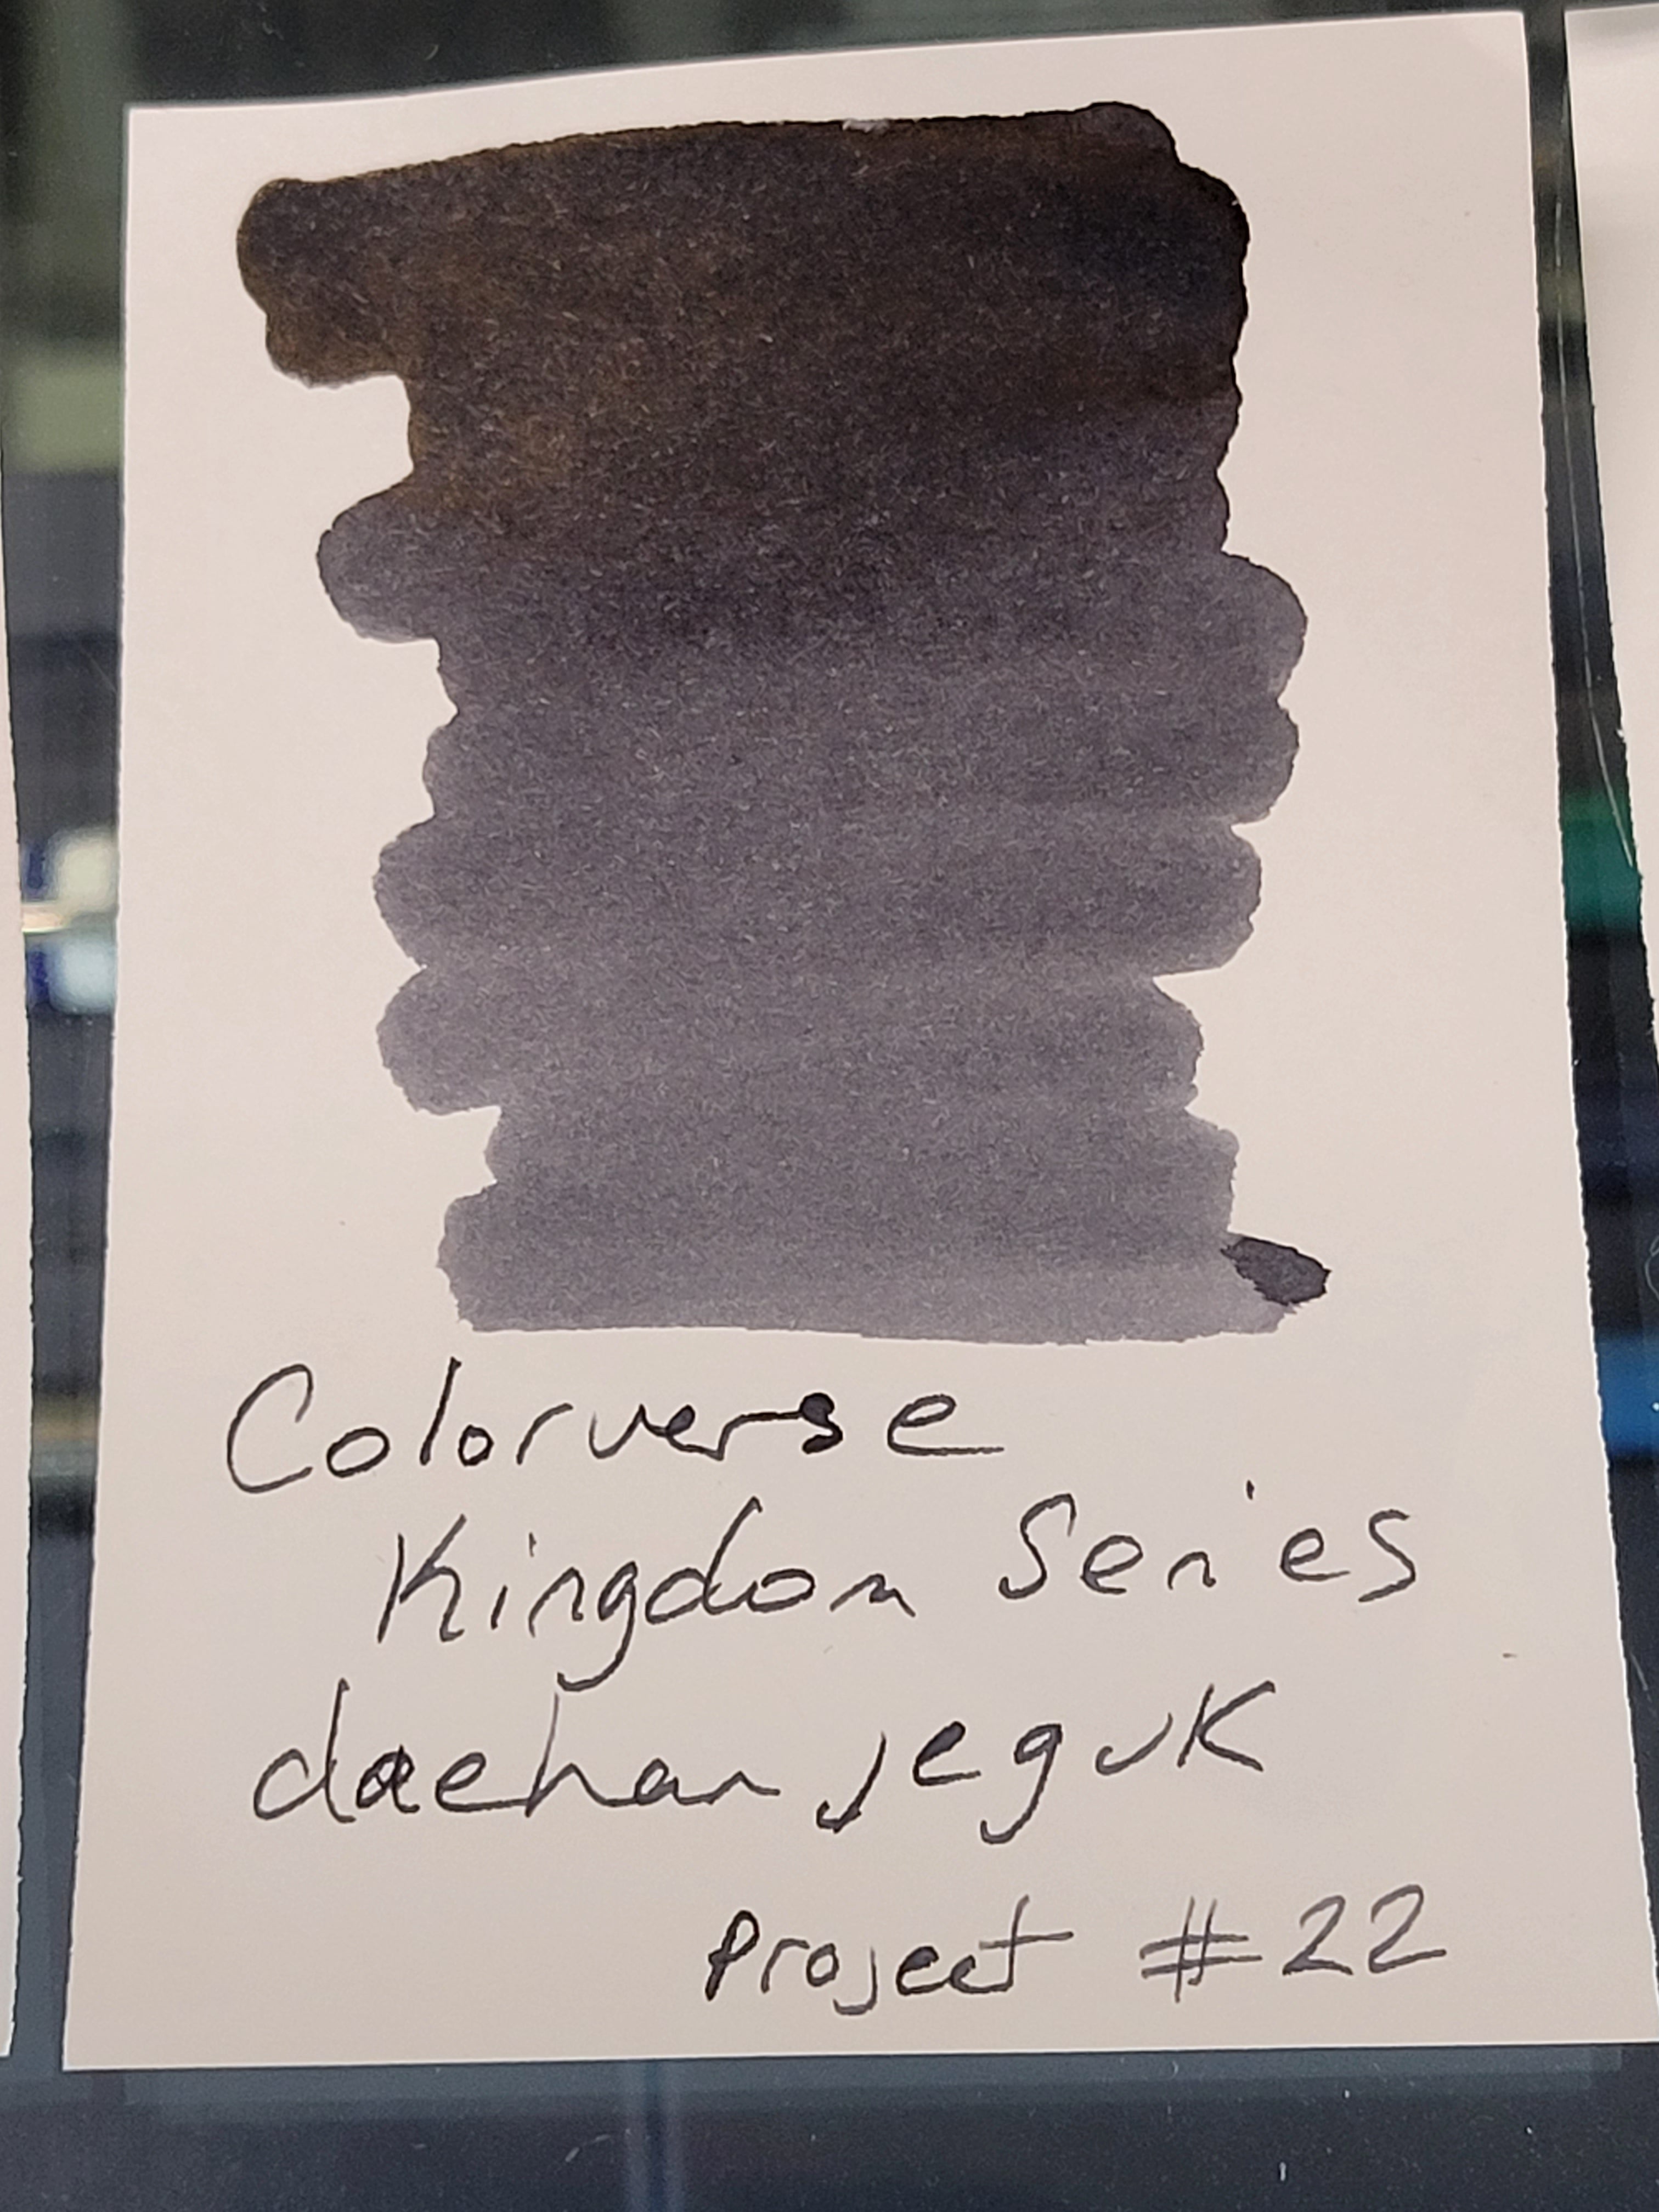 Colorverse
Kingdom Series
daehan jeguk
Project #22